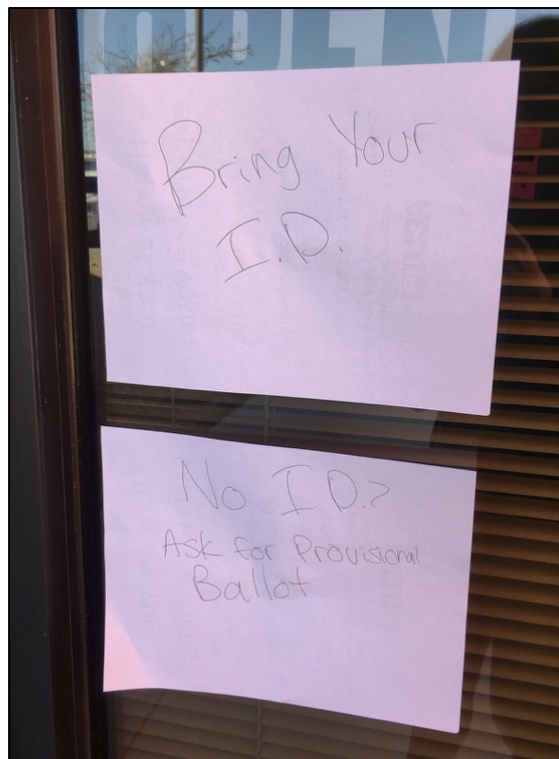 OPEN
Bring Your
I.D.
No I D.?
Ask for Provisional
Ballot